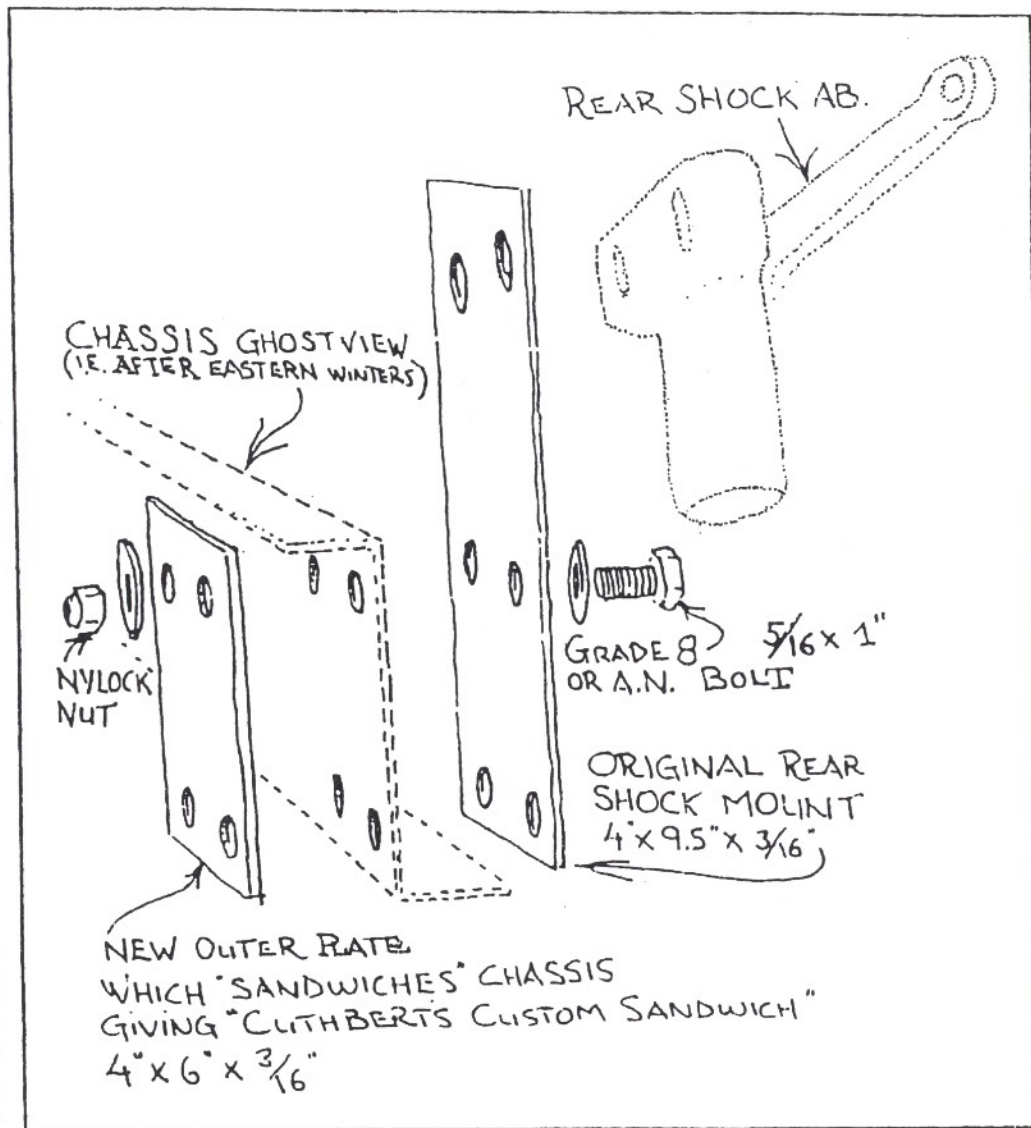 REAR SHOCK AB.
CHASSIS GHOSTVIEW
(I.E. AFTER EASTERN WINTERS)
NYLOCK
NUT
GRADE 8 5/16 x 1"
OR A.N. BOLT
ORIGINAL REAR
SHOCK MOUNT
4" x 9.5" x 3/16"
NEW OUTER PLATE
WHICH "SANDWICHES" CHASSIS
GIVING "CUTHBERTS CUSTOM SANDWICH"
4" x 6" x 3/16"